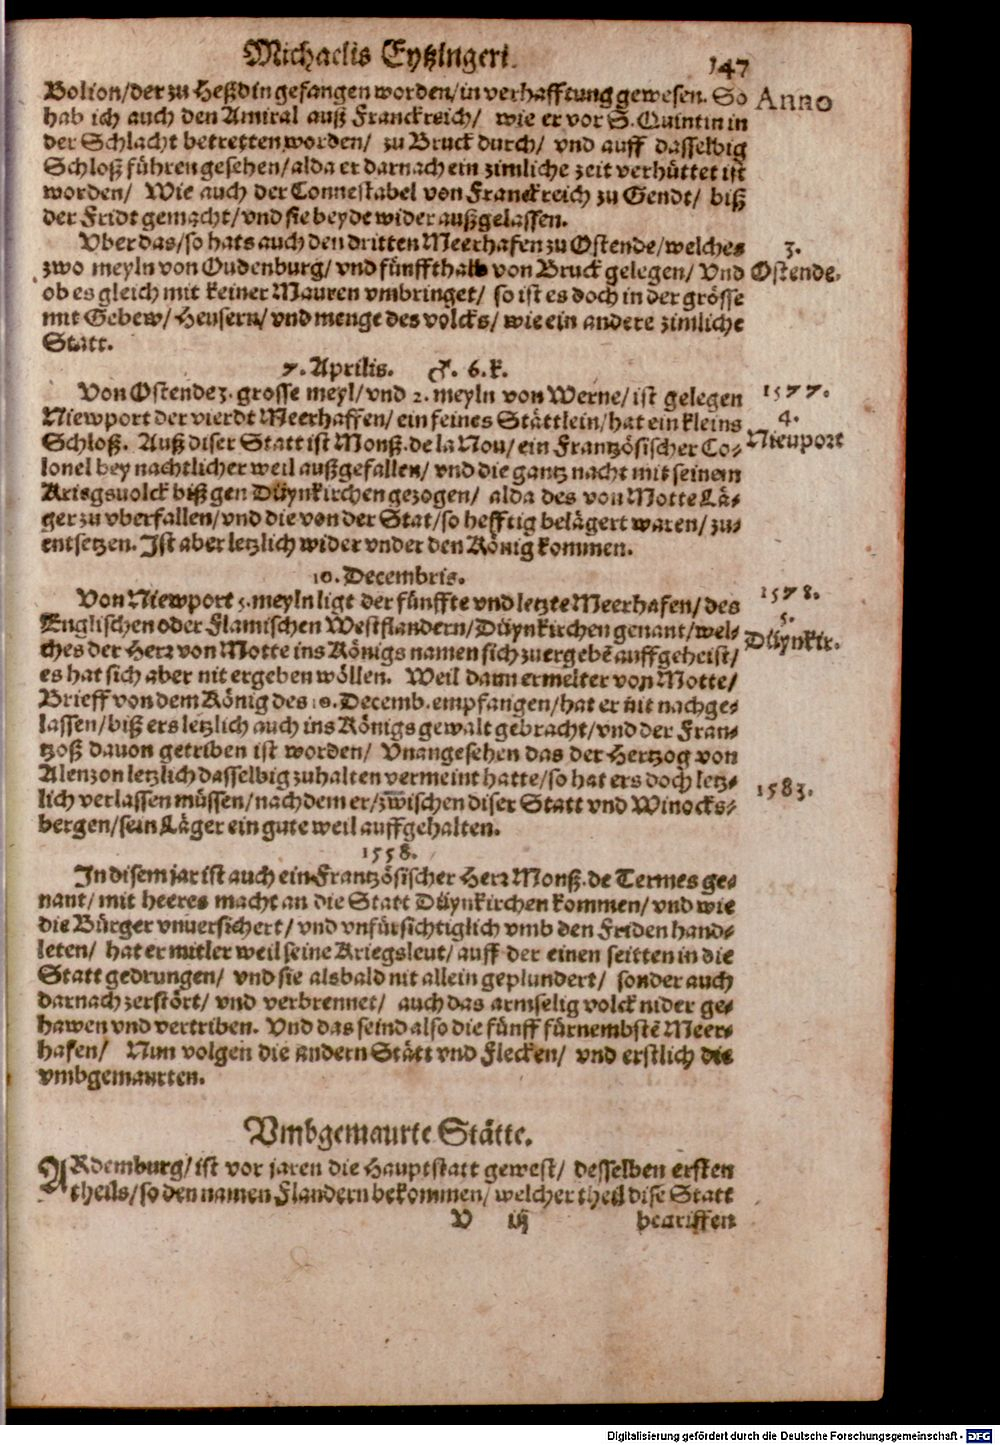 Michaelis Eytzingeri.
147
Bolion/der zu Heßdin gefangen worden/in verhafftung gewesen. So
Anno
hab ich auch den Amiral auß Franckreich/ wie er vor S. Quintin in
der Schlacht betretten worden/ zu Bruck durch/ vnd auff dasselbig
Schloß führen gesehen/alda er darnach ein zimliche zeit verhüttet ist
worden/ Wie auch der Connestabel von Franckreich zu Gendt/ biß
der Fridt gemacht/vnd sie beyde wider außgelassen.
Vber das/so hats auch den dritten Meerhafen zu Ostende/welches
3.
zwo meyln von Oudenburg/vnd fünffthalb von Bruck gelegen/ Vnd
Ostende.
ob es gleich mit keiner Mauren vmbringet/ so ist es doch in der grösse
mit Gebew/Heusern/vnd menge des volcks/wie ein andere zimliche
Statt.
7. Aprilis. ♂. 6. k.
Von Ostende 3. grosse meyl/vnd 2. meyln von Werne/ist gelegen
1577.
Niewport der vierdt Meerhaffen/ein feines Stättlein/hat ein kleins
4.
Schloß. Auß diser Statt ist Monß. de la Nou/ein Frantzösischer Co-
Nieuport
lonel bey nachtlicher weil außgefallen/vnd die gantz nacht mit seinem
Kriegsvolck biß gen Düynkirchen gezogen/ alda des von Motte Lä-
ger zu vberfallen/vnd die von der Stat/so hefftig belägert waren/zu-
entsetzen. Ist aber letzlich wider vnder den König kommen.
10. Decembris.
1578.
Von Niewport 5. meyln ligt der fünffte vnd letzte Meerhafen/des
5.
Englischen oder Flamischen Westflandern/Düynkirchen genant/wel-
Düynkir.
ches der Herr von Motte ins Königs namen sich zuergebē auffgeheist/
es hat sich aber nit ergeben wöllen. Weil dann ermelter von Motte/
Brieff von dem König des 10. Decemb. empfangen/hat er nit nachge-
lassen/biß ers letzlich auch ins Königs gewalt gebracht/vnd der Fran-
tzoß dauon getriben ist worden/ Vnangesehen das der Hertzog von
Alenzon letzlich dasselbig zuhalten vermeint hatte/so hat ers doch letz-
1583.
lich verlassen müssen/nach dem er/zwischen diser Statt vnd Winocks-
bergen/sein Läger ein gute weil auffgehalten.
1558.
In disem jar ist auch ein Frantzösischer Herr Monß. de Termes ge-
nant/mit heeres macht an die Statt Düynkirchen kommen/vnd wie
die Bürger vnuersichert/vnd vnfürsichtiglich vmb den Friden hand-
leten/ hat er mitler weil seine Kriegsleut/auff der einen seitten in die
Statt gedrungen/ vnd sie alsbald nit allein geplundert/ sonder auch
darnach zerstört/ vnd verbrennet/ auch das armselig volck nider ge-
hawen vnd vertriben. Vnd das seind also die fünff fürnembstē Meer-
hafen/ Nun volgen die andern Stätt vnd Flecken/ vnd erstlich die
vmbgemaurten.
Vmbgemaurte Stätte.
ARdemburg/ist vor jaren die Hauptstatt gewest/ desselben ersten
theils/so den namen Flandern bekommen/welcher theil dise Statt
V iij
begriffen
Digitalisierung gefördert durch die Deutsche Forschungsgemeinschaft - DFG